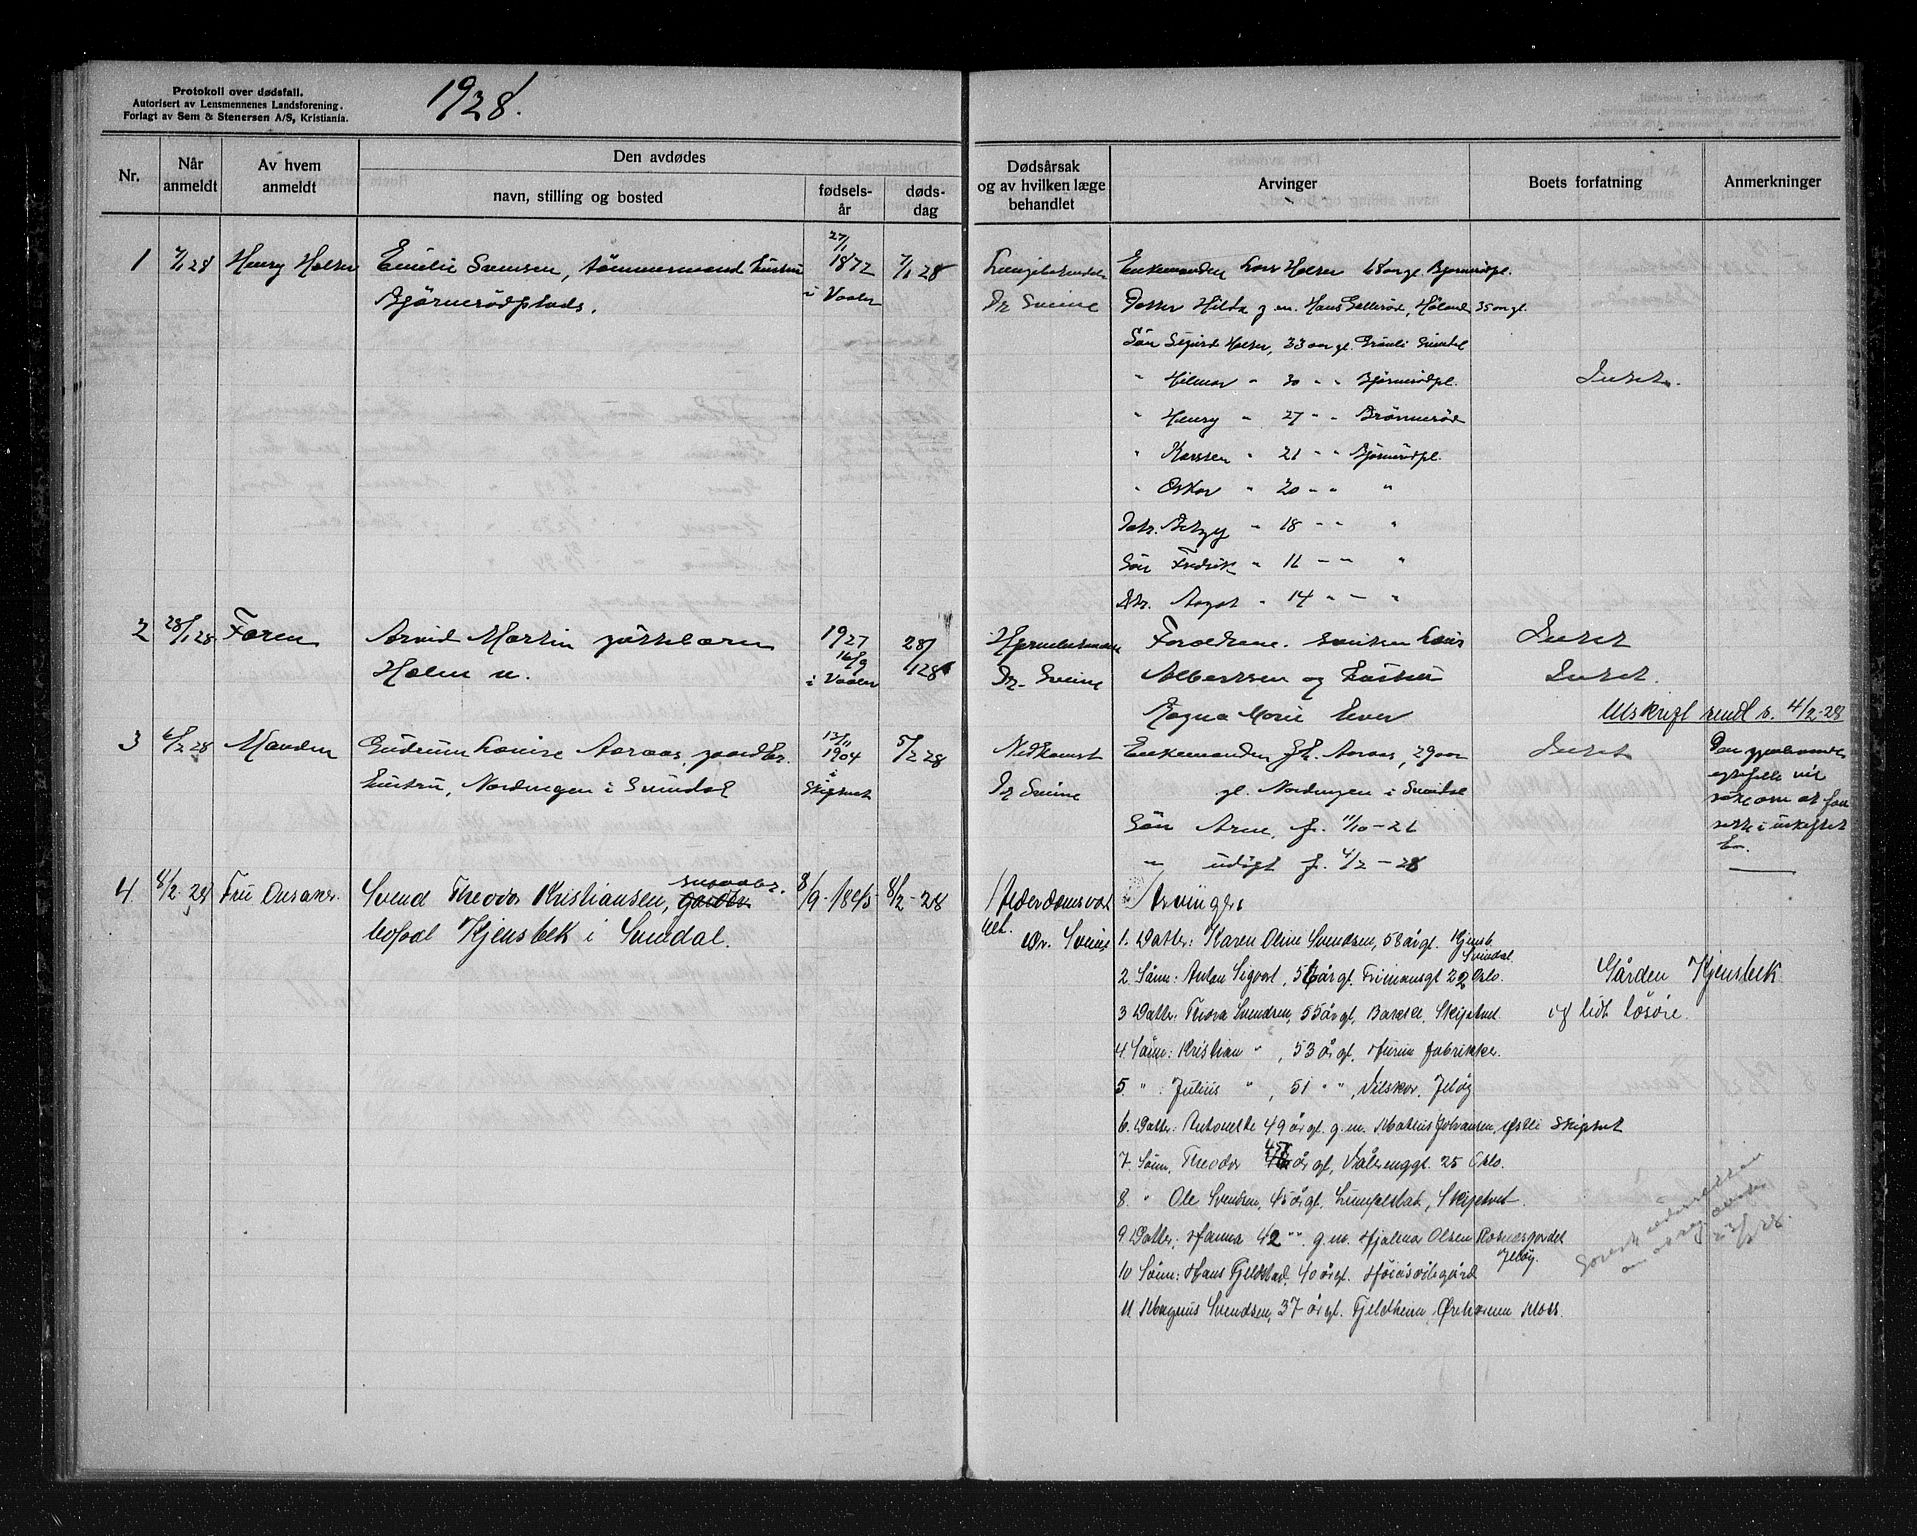 Protokoll over dødsfall.
Autorisert av Lensmennenes Landsforening.
Forlagt av Sem & Stenersen A/S, Kristiania.
1928.
Nr.
Når anmeldt
Av hvem anmeldt
Den avdødes
navn, stilling og bosted
fødsels-år
døds-dag
Dødsårsak og av hvilken læge behandlet
Arvinger
Boets forfatning
Anmerkninger
1 7/1 28 Henry Holser Emilie Svensen, tömmermand hustru
Bjørnerödplads.
27/1 1872 i Vaaler
7/1 28
Dr Sveine
Enkemanden Lars Holser 68 aar gl. Bjørnerödpl.
Datter Hilda g. m. Hans Gellerød, Høland 35 aar gl.
Sön Sigurd Holser, 33 aar gl. Svindal
" Hilmar " 30 " " Bjørnerödpl.
" Henry " 27 " " Brönneröd
" Karsten " 21 " " Bjørnerödpl.
" Oskar " 20 " " "
Datr. " 18 " " "
Sön Fredrik " 16 " " "
Dtr. Aagot " 14 " " "
Intet.
2 28/1 28 Faren Arvid Martin pottebarn
Holm u.
1927 16/9 i Vaaler
28/1 28
Hjernebetændelse
Dr. Sveine
Forældrene. Lars
Albertsen og hustru
Ragna Marie Iver
Intet
Intet.
Utskrift sendt s. 4/2-28
3 6/2 28 Manden Gudrun Louise Aaraas, gaardbr.
hustru, Nordengen i Svindal
13/11 1904 i Skiptvet
5/2 28
Nedkomst
Dr Sveine
Enkemanden Aaraas, 29 aar
gl. Nordengen i Svindal
Sön Arne, f. 11/10-26
" udøpt f. 4/2-28
Intet
Den gjenlevende
egtefelle vil
søke om at faa
sitte i uskiftet
bo.
4 8/2-28 Fru Svend Theodor Kristiansen, smaabr.
bosat Kjensbek i Svindal.
8/9-1845
8/2-28
Alderdomssvak
het.
Dr. Sveine
Arvinger:
1. Datter: Karen Oline Svendsen, 58 år gl. Kjensb. Svindal.
2. Sønn: Anton Sigvart, 56 år gl. Frimansgt 22 Oslo.
3 Datter: Thora Svendsen, 55 år gl, Skiptvet
4. Sønn: Kristian " , 53 år gl. Hurum fabrikker.
5. " : Julius " , 51 " " , Vilskov, Jeløy
6. Datter: Antonette 49 år gl. g.m. Mathis Johansen, Østli Skiptvet
7. Sønn, Theodor 45 år gl, Vålerenggt. 25 Oslo.
8 " Ole Svendsen, 45 år gl, Skiptvet.
9 Datter, Hanna 42 " ". g.m. Hjalmar Olsen Rosnesgordet Jeløy.
10 Sønn: Hans Fjeldstad, 40 år gl.
11 Magnus Svendsen, 37 år gl. Fjeldheim, Ørehavnen Moss.
Gården Kjensbek
og lidt løsøre.